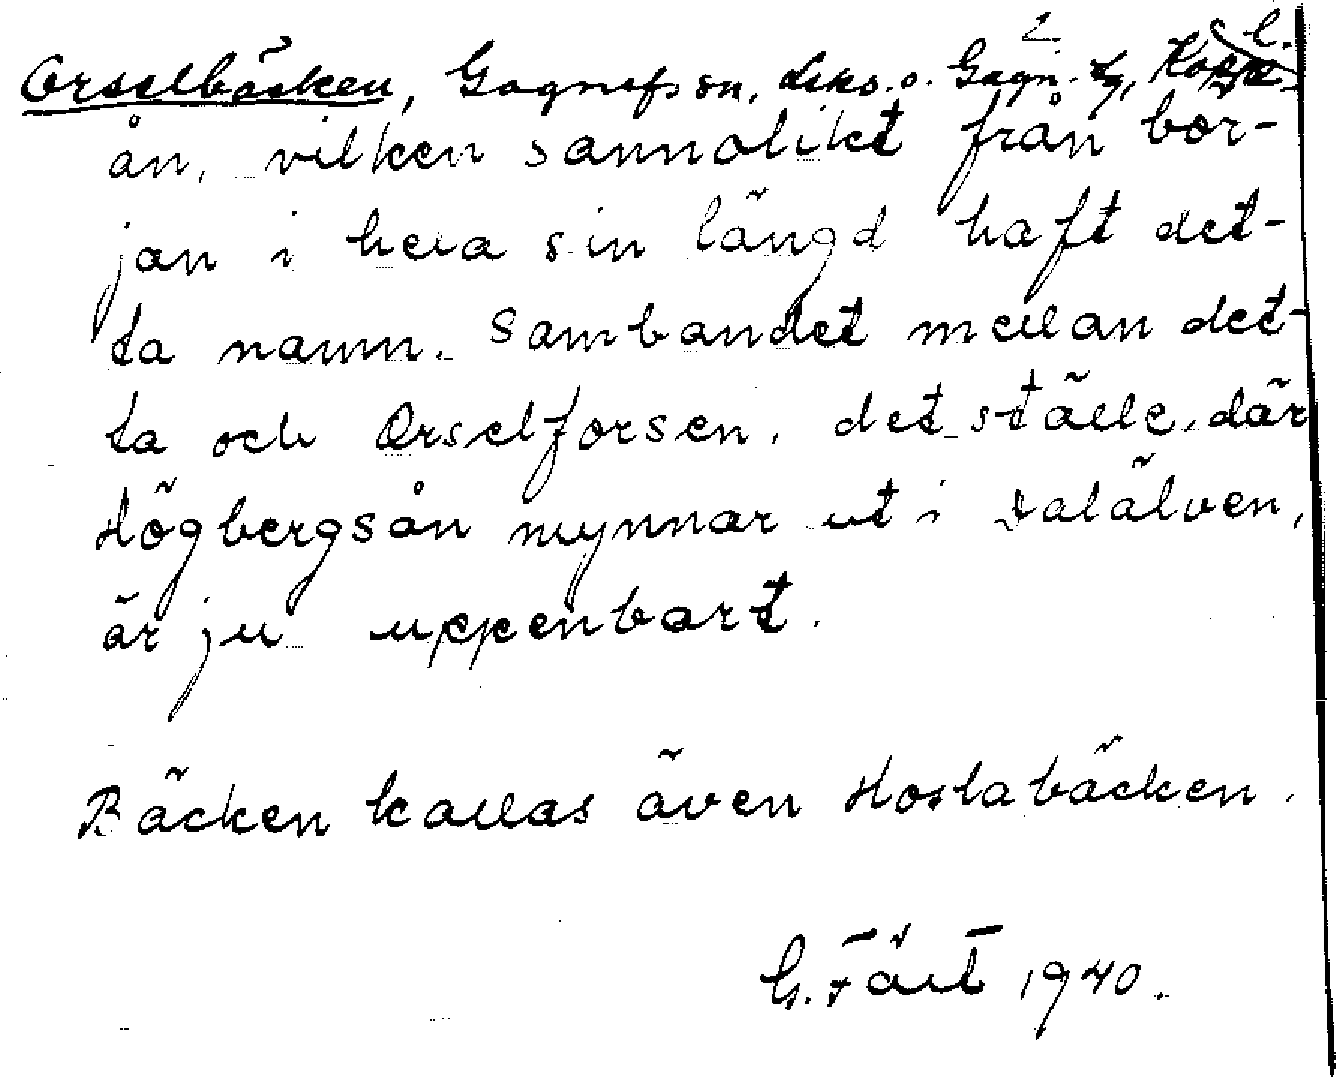 2.
Orselbäcken, Gagnefs sn, Leks. o. Gagn. tg,
ån, vilken sannolikt från bör-
jan i hela sin längd haft det-
ta namn. Sambandet mellan det-
ta och Orselforsen, det ställe, där
Högbergsån mynnar ut i Dalälven,
är ju uppenbart.
Bäcken kallas även Hostabäcken.
G. Fält 1940.